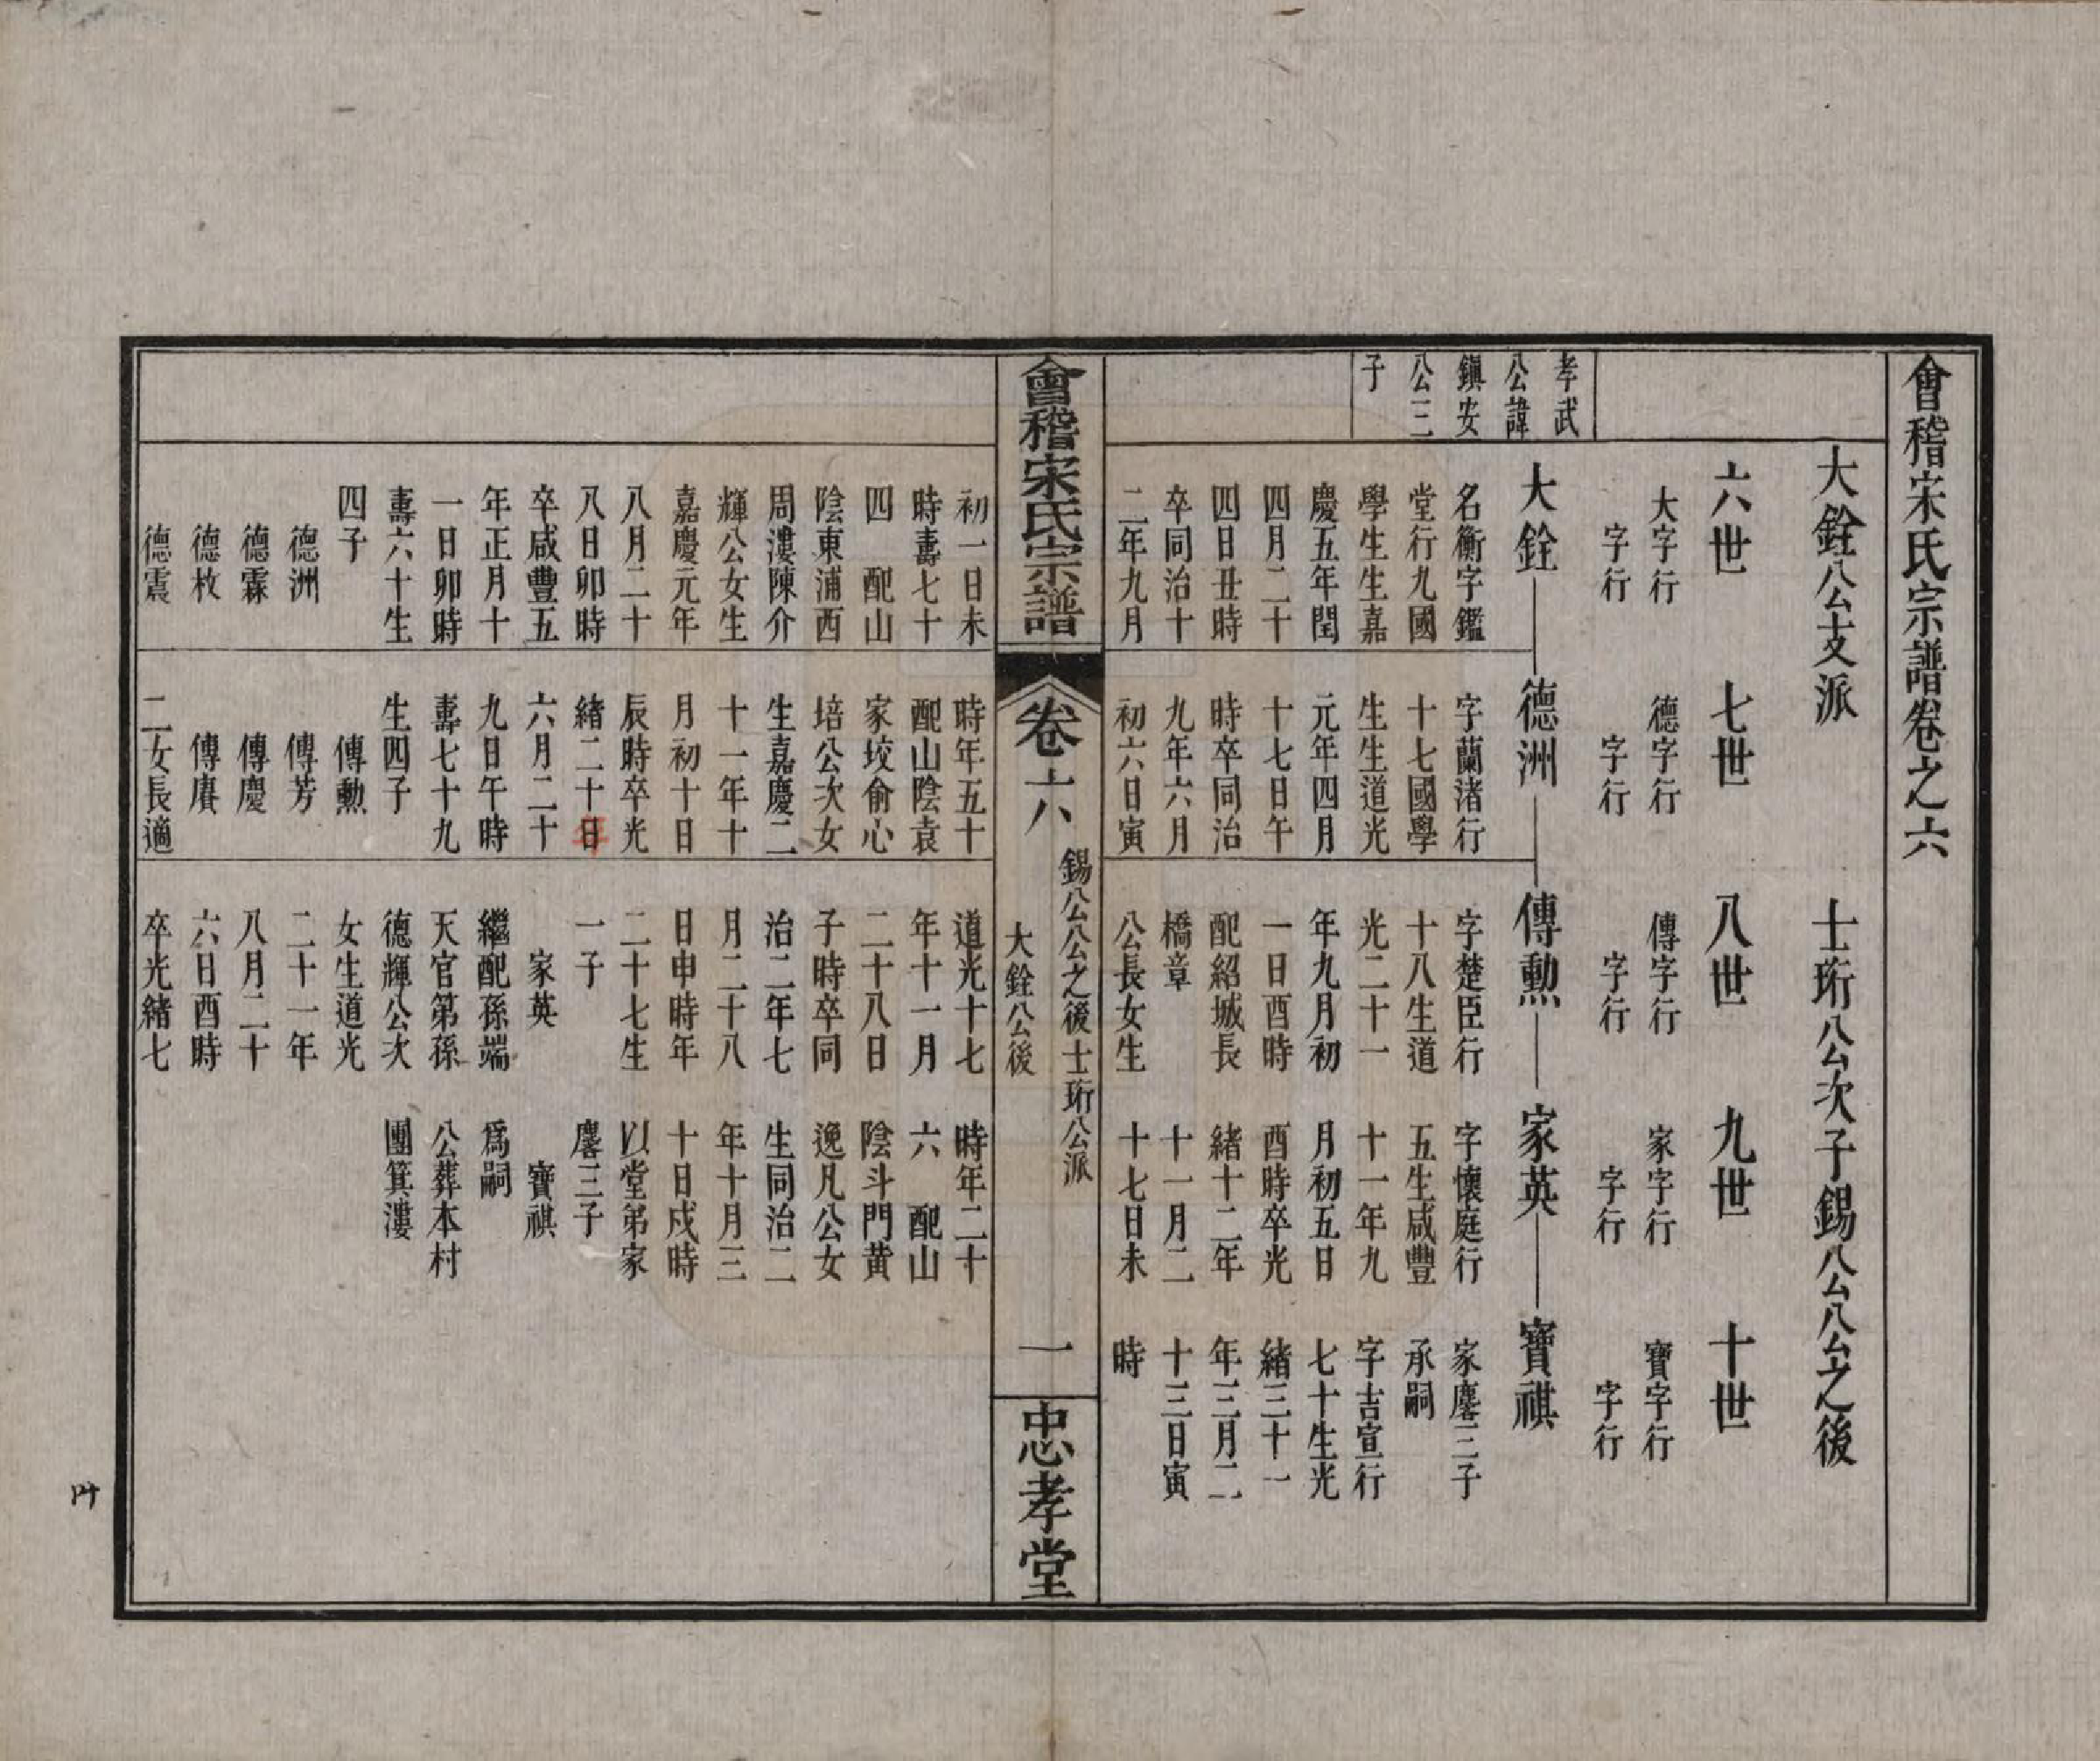 會稽宋氏宗譜卷之六
大銓公支派
士珩公次子錫公公之後
六世
七世
八世
九世
十世
大字行
德字行
傳字行
家字行
寶字行
字行
字行
字行
字行
字行
孝武
公諱
鎮安
公三
子
大銓
德洲
傳勲
家英
寶祺
名衡字鑑
堂行九國
學生生嘉
慶五年閏
四月二十
四日丑時
卒同治十
二年九月
字蘭渚行
十七國學
生生道光
元年四月
十七日午
時卒同治
九年六月
初六日寅
字楚臣行
十八生道
光二十一
年九月初
一日酉時
配紹城長
橋章
公長女生
字懷庭行
五生咸豐
十一年九
月初五日
酉時卒光
緒十二年
十一月二
十七日未
家麐三子
承嗣
字吉宣行
七十生光
緒三十一
年三月二
十三日寅
時
會稽宋氏宗譜
卷六
錫公公之後士珩公派
大銓公後
一
忠孝堂
初一日未
時壽七十
四 配山
陰東浦西
周漊陳介
輝公女生
嘉慶元年
八月二十
八日卯時
卒咸豐五
年正月十
一日卯時
壽六十生
四子
德洲
德霖
德枚
德震
時年五十
配山陰袁
家垵俞心
培公次女
生嘉慶二
十一年十
月初十日
辰時卒光
緒二十日
年
六月二十
九日午時
壽七十九
生四子
傳勲
傳芳
傳慶
傳賡
二女長適
道光十七
年十一月
二十八日
子時卒同
治二年七
月二十八
日申時年
二十七生
一子
家英
繼配孫端
天官第孫
德輝公次
女生道光
二十一年
八月二十
六日酉時
卒光緒七
時年二十
六 配山
陰斗門黃
逸凡公女
生同治二
年十月三
十日戌時
以堂弟家
麐三子
寶祺
爲嗣
公葬本村
團箕漊